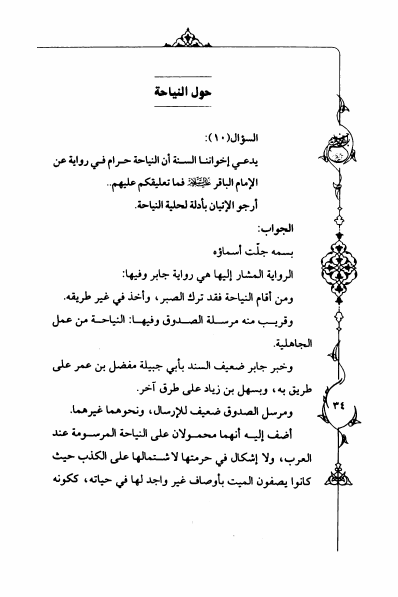 حول النياحة
السؤال(١٠):
يدعي إخواننا السنة أن النياحة حرام في رواية عن
الإمام الباقر فما تعليقكم عليهم..
أرجو الإتيان بأدلة لحلية النياحة.
الجواب:
بسمه جلّت أسماؤه
الرواية المشار إليها هي رواية جابر وفيها:
ومن أقام النياحة فقد ترك الصبر، وأخذ في غير طريقه.
وقريب منه مرسلة الصدوق وفيها: النياحة من عمل
الجاهلية.
وخبر جابر ضعيف السند بأبي جبيلة مفضل بن عمر على
طريق به، وبسهل بن زياد على طرق آخر.
٣٤
ومرسل الصدوق ضعيف للإرسال، ونحوهما غيرهما.
أضف إليه أنهما محمولان على النياحة المرسومة عند
العرب، ولا إشكال في حرمتها لاشتمالها على الكذب حيث
كانوا يصفون الميت بأوصاف غير واجد لها في حياته، ككونه